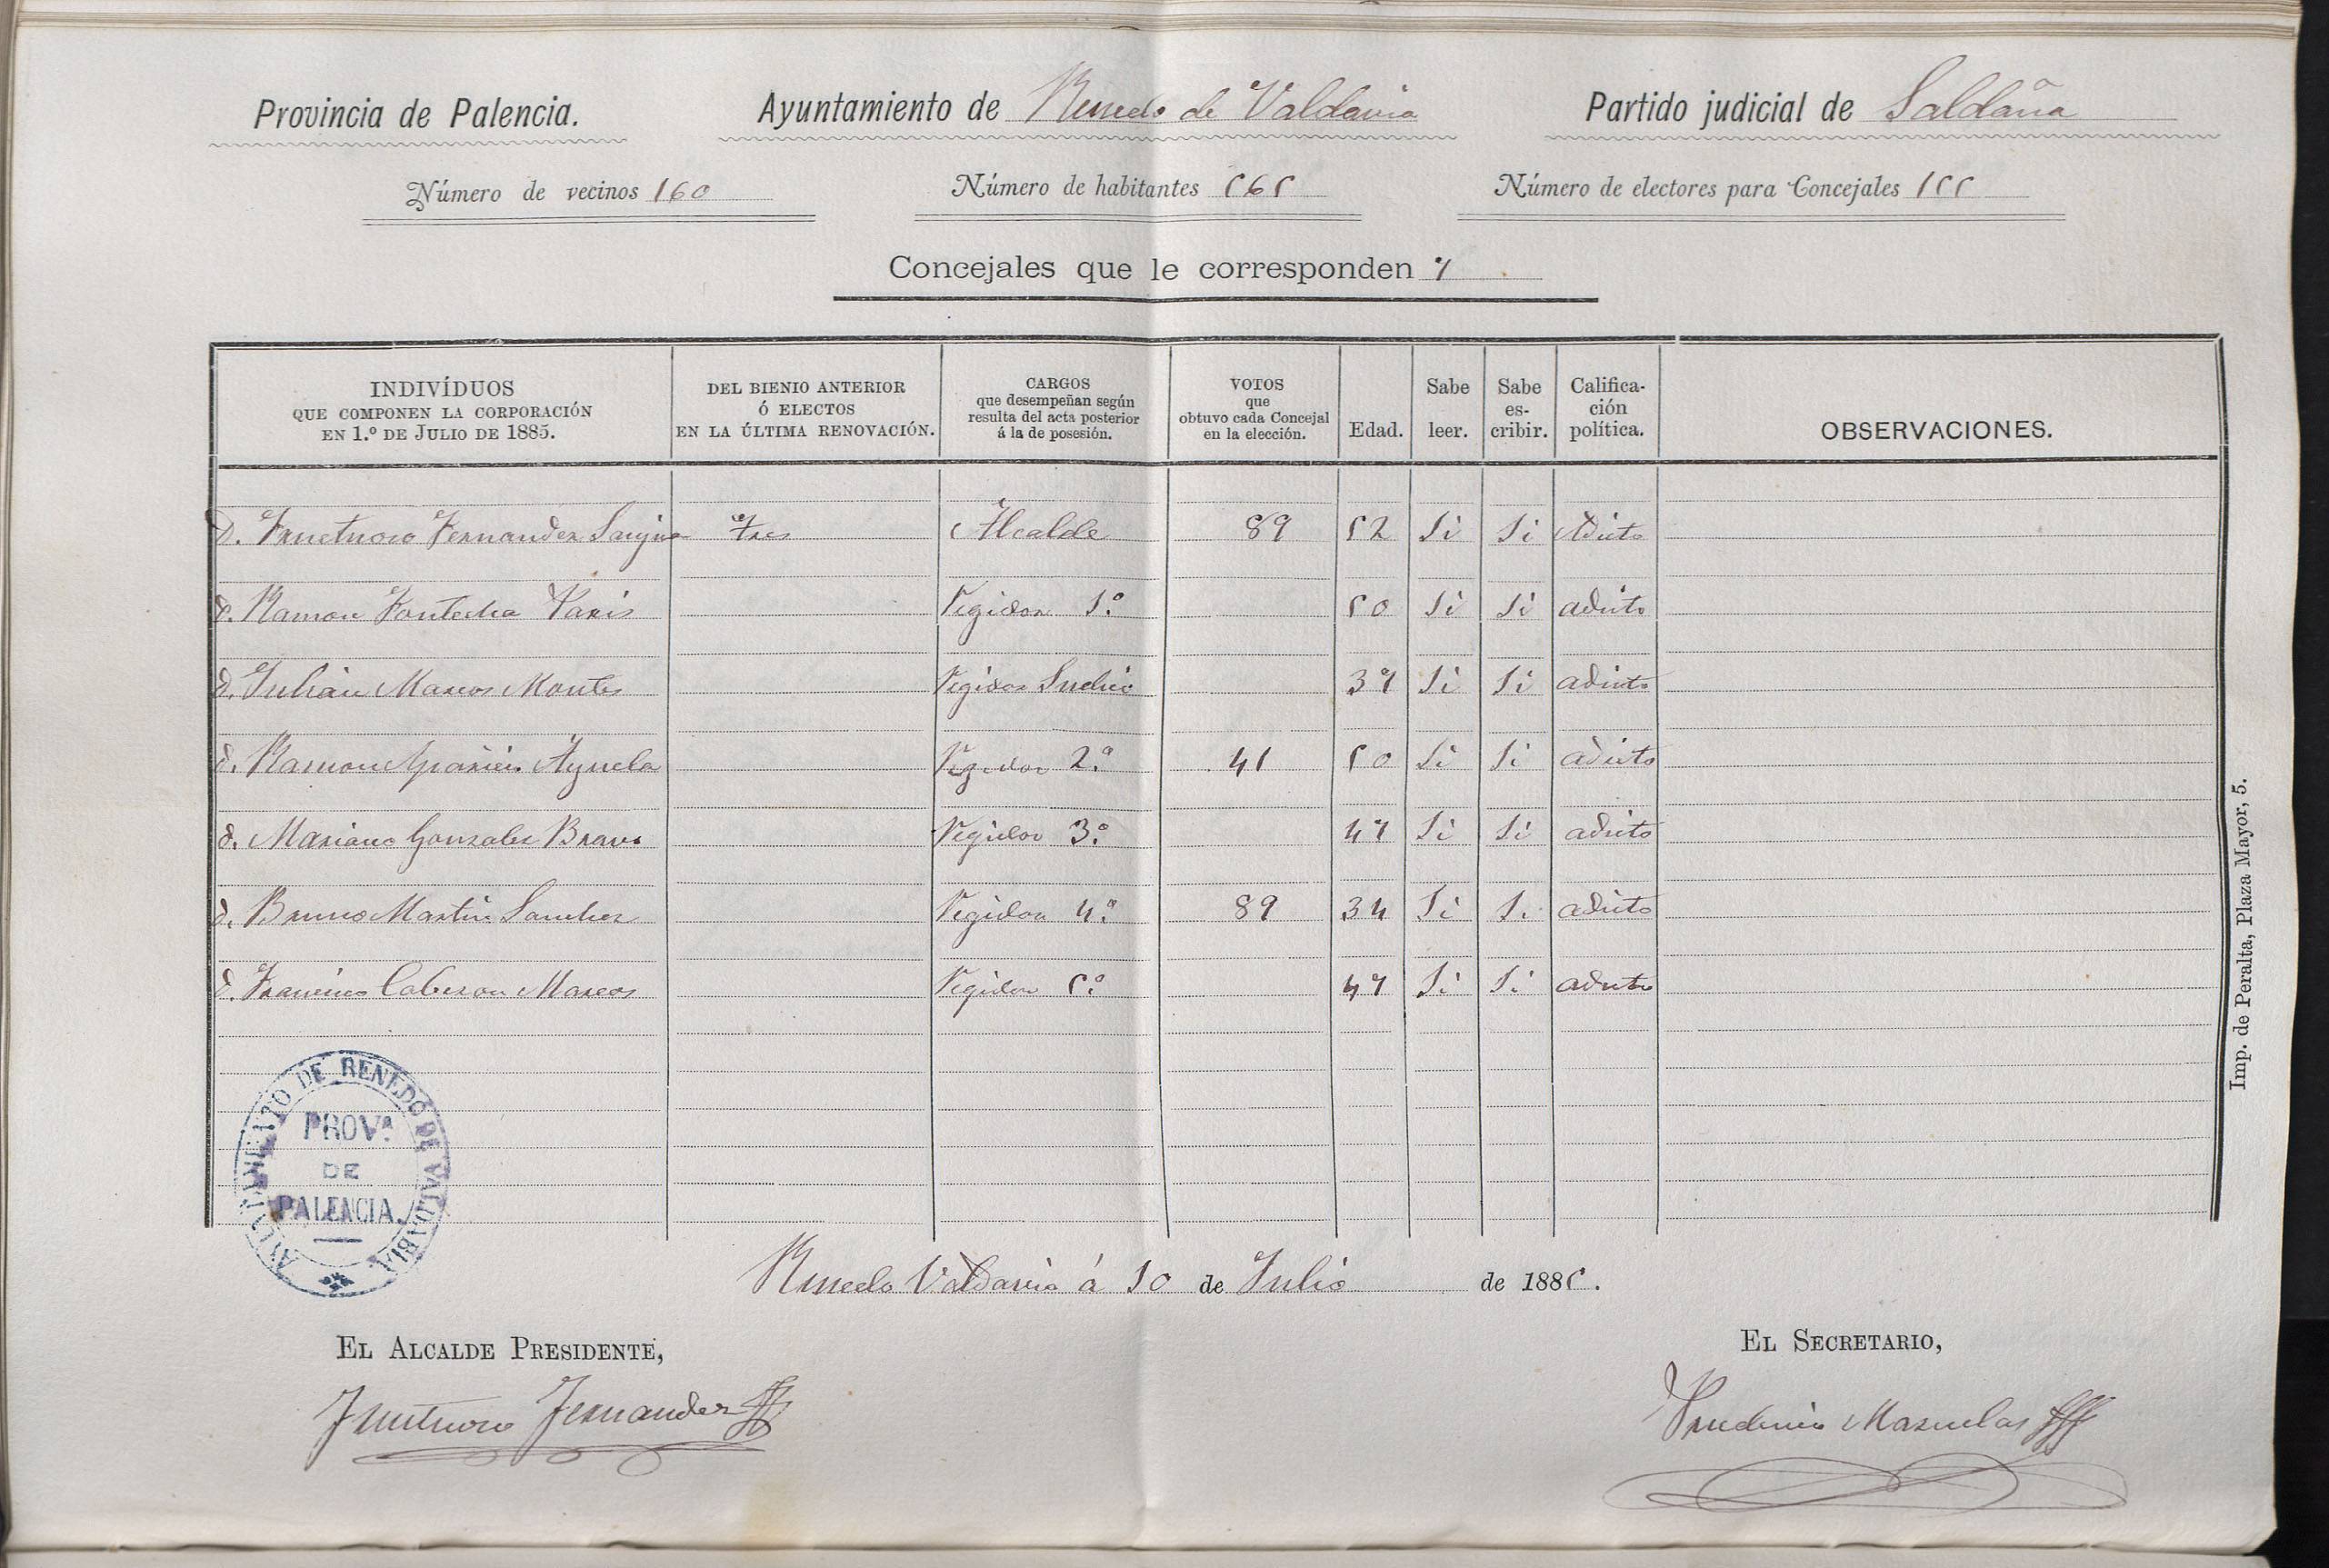 Provincia de Palencia. Ayuntamiento de Renedo de Valdavia Partido judicial de Saldaña
Número de vecinos 160 Número de habitantes 565 Número de electores para Concejales 155
Concejales que le corresponden 7
INDIVÍDUOS QUE COMPONEN LA CORPORACIÓN EN 1.º DE JULIO DE 1885.
DEL BIENIO ANTERIOR Ó ELECTOS EN LA ÚLTIMA RENOVACIÓN.
CARGOS que desempeñan según resulta del acta posterior á la de posesión.
VOTOS que obtuvo cada Concejal en la elección.
Edad.
Sabe leer.
Sabe es-cribir.
Califica-ción política.
OBSERVACIONES.
D. Fructuoso Fernandez tres Alcalde 89 52 Si Si Adicto
d. Ramon Fontecha Paris Regidor 1.º 50 Si Si adicto
d. Julian Marcos Montes Regidor Sindico 37 Si Si adicto
d. Ramon Ayuela Regidor 2.º 41 50 Si Si adicto
d. Mariano Gonzalez Bravo Regidor 3.º 47 Si Si adicto
d. Bruno Martin Sanchez Regidor 4.º 89 34 Si Si adicto
d. Francisco Caberon Marcos Regidor 5.º 47 Si Si adicto
AYUNTAMIENTO DE RENEDO DE VALDABIA
PROVª
DE
PALENCIA.
Renedo Valdavia á 10 de Julio de 1885.
EL ALCALDE PRESIDENTE, EL SECRETARIO,
Fructuoso Fernandez Prudencio Mazuelas
Imp. de Peralta, Plaza Mayor, 5.